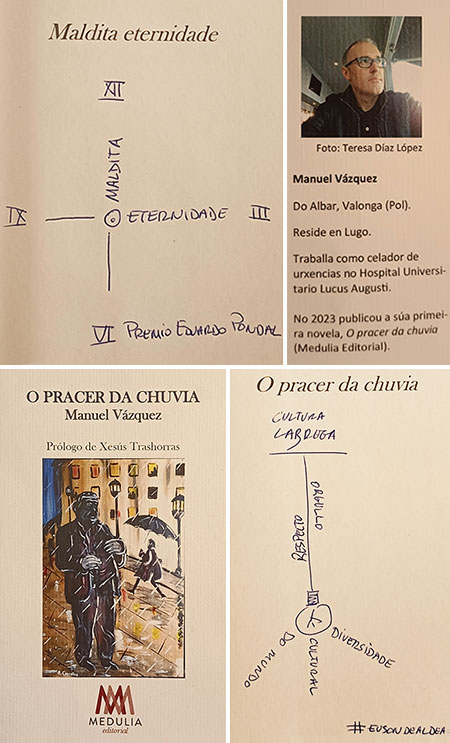 Maldita eternidade
XII
MALDITA
IX
ETERNIDADE
III
VI PREMIO EDUARDO PONDAL
Foto: Teresa Díaz López
Manuel Vázquez
Do Albar, Valonga (Pol).
Reside en Lugo.
Traballa como celador de
urxencias no Hospital Universi-
tario Lucus Augusti.
No 2023 publicou a súa primei-
ra novela, O pracer da chuvia
(Medulia Editorial).
O PRACER DA CHUVIA
Manuel Vázquez
Prólogo de Xesús Trashorras
MEDULIA
editorial
O pracer da chuvia
CULTURA
LABREGA
ORGULLO
RESPECTO
DIVERSIDADE
CULTURAL
DO MUNDO
#EUSONDEALDEA